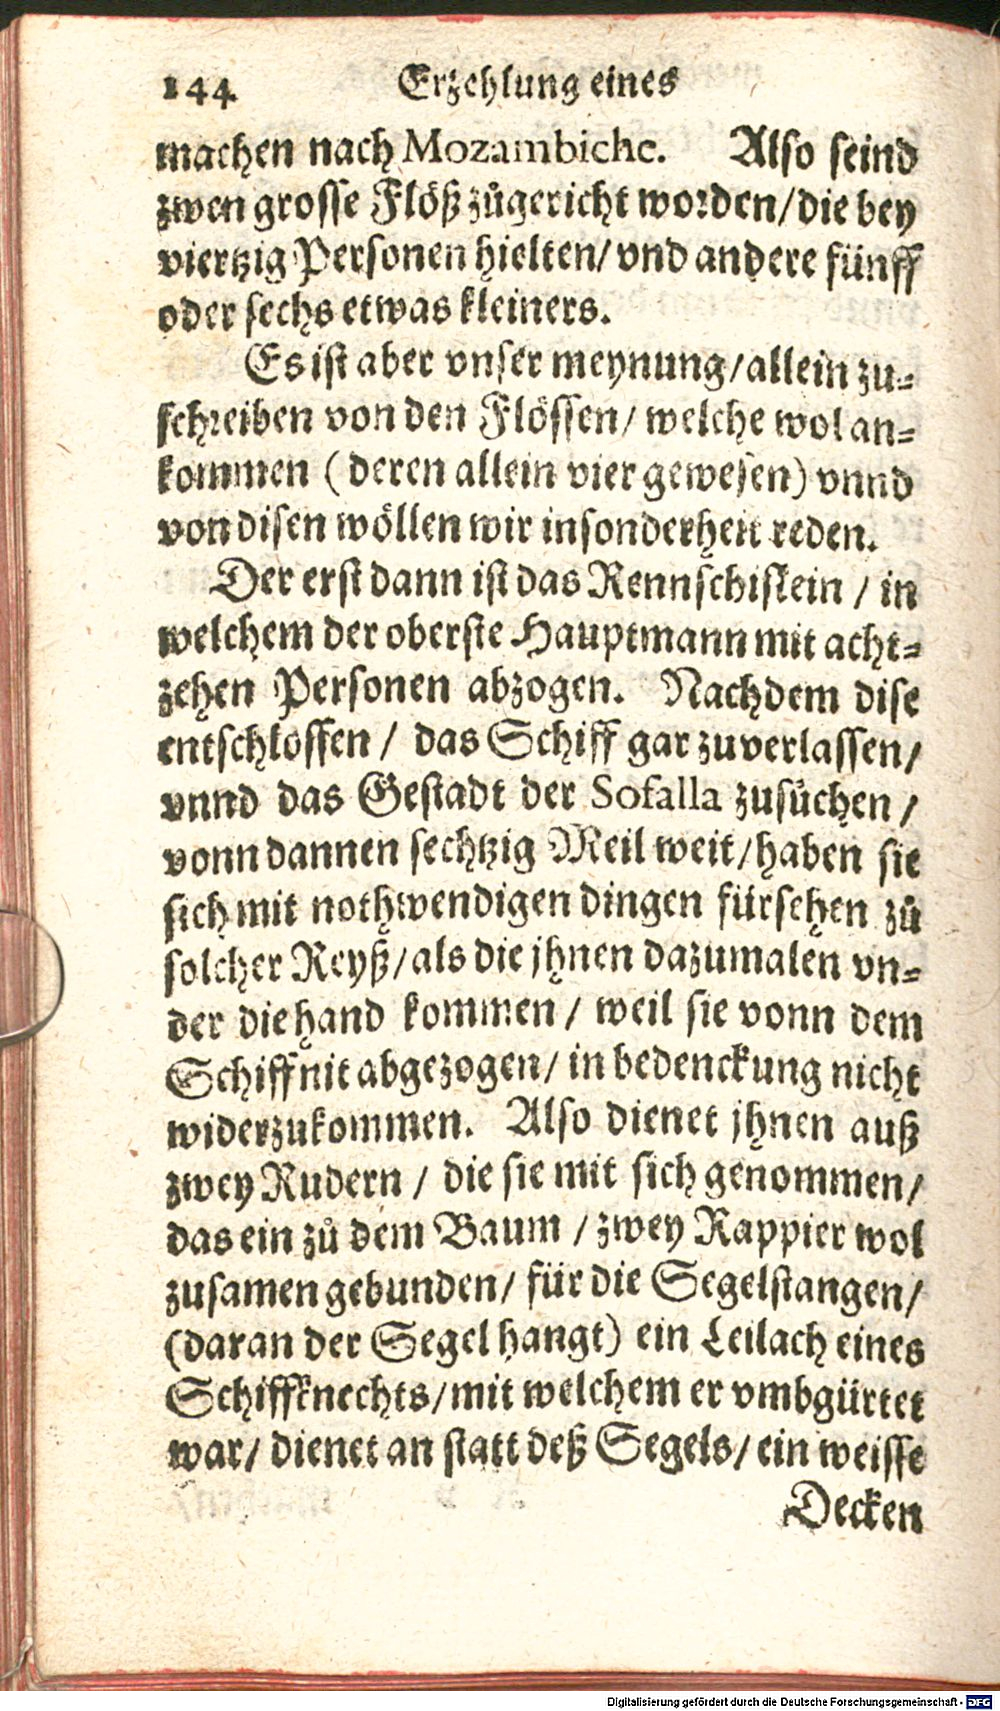 144 Erzehlung eines
machen nach Mozambiche. Also seind
zwen grosse Flöß zůgericht worden/die bey
viertzig Personen hielten/ vnd andere fünff
oder sechs etwas kleiners.
Es ist aber vnser meynung/allein zu-
schreiben von den Flössen/ welche wol an-
kommen (deren allein vier gewesen) vnnd
von disen wöllen wir insonderheit reden.
Der erst dann ist das Rennschiflein / in
welchem der oberste Hauptmann mit acht-
zehen Personen abzogen. Nachdem dise
entschlossen / das Schiff gar zuverlassen/
vnnd das Gestadt der Sofalla zusůchen /
vonn dannen sechtzig Meil weit/haben sie
sich mit nothwendigen dingen fürsehen zů
solcher Reyß/als die jhnen dazumalen vn-
der die hand kommen / weil sie vonn dem
Schiff nit abgezogen/ in bedenckung nicht
widerzukommen. Also dienet jhnen auß
zwey Rudern / die sie mit sich genommen/
das ein zů dem Baum / zwey Rappier wol
zusamen gebunden/ für die Segelstangen/
(daran der Segel hangt) ein Leilach eines
Schiffknechts/mit welchem er vmbgürtet
war/ dienet an statt deß Segels/ ein weisse
Decken
Digitalisierung gefördert durch die Deutsche Forschungsgemeinschaft - DFG